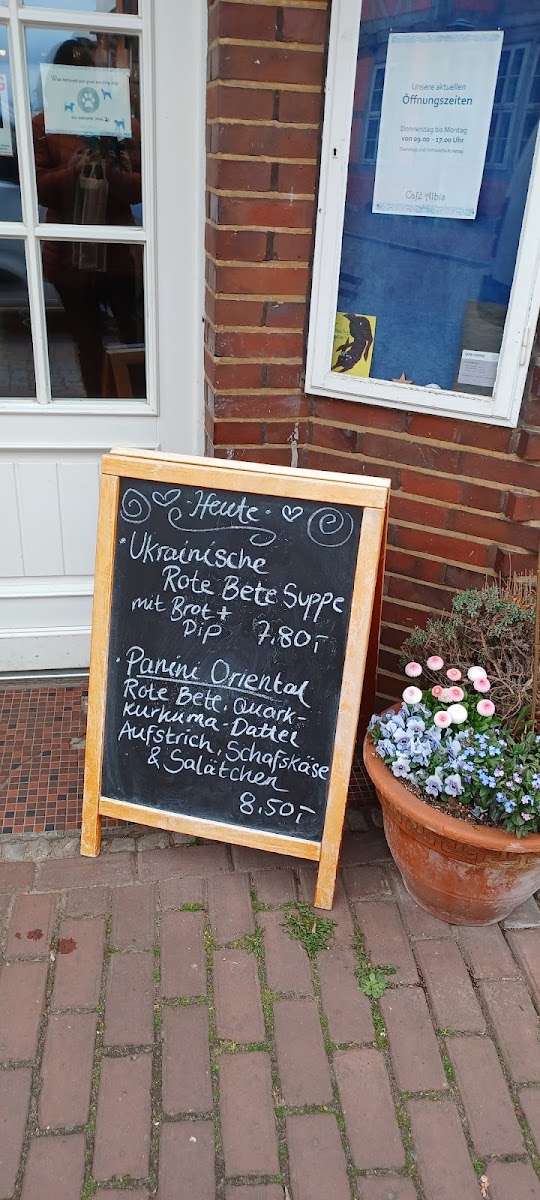 Unsere aktuellen
Öffnungszeiten
Donnerstag bis Montag
von 09.00 - 17.00 Uhr
Café Albis
·Heute·
· Ukrainische
Rote Bete Suppe
mit Brot +
Dip 7,80,-
· Panini Oriental
Rote Bete, Quark-
Kurkuma-Dattel
Aufstrich, Schafskäse
& Salätchen
8,50,-